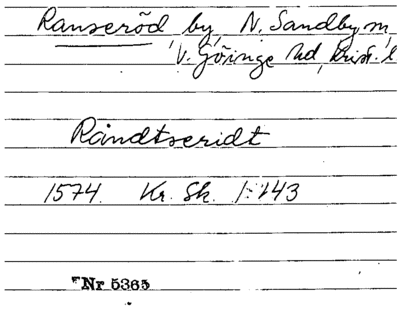 Ranseröd by, N. Sandby sn,
V. Göinge hd, Krist. l
Råndtseridt
1574. Kr. Sk. 1:143
Nr 5365